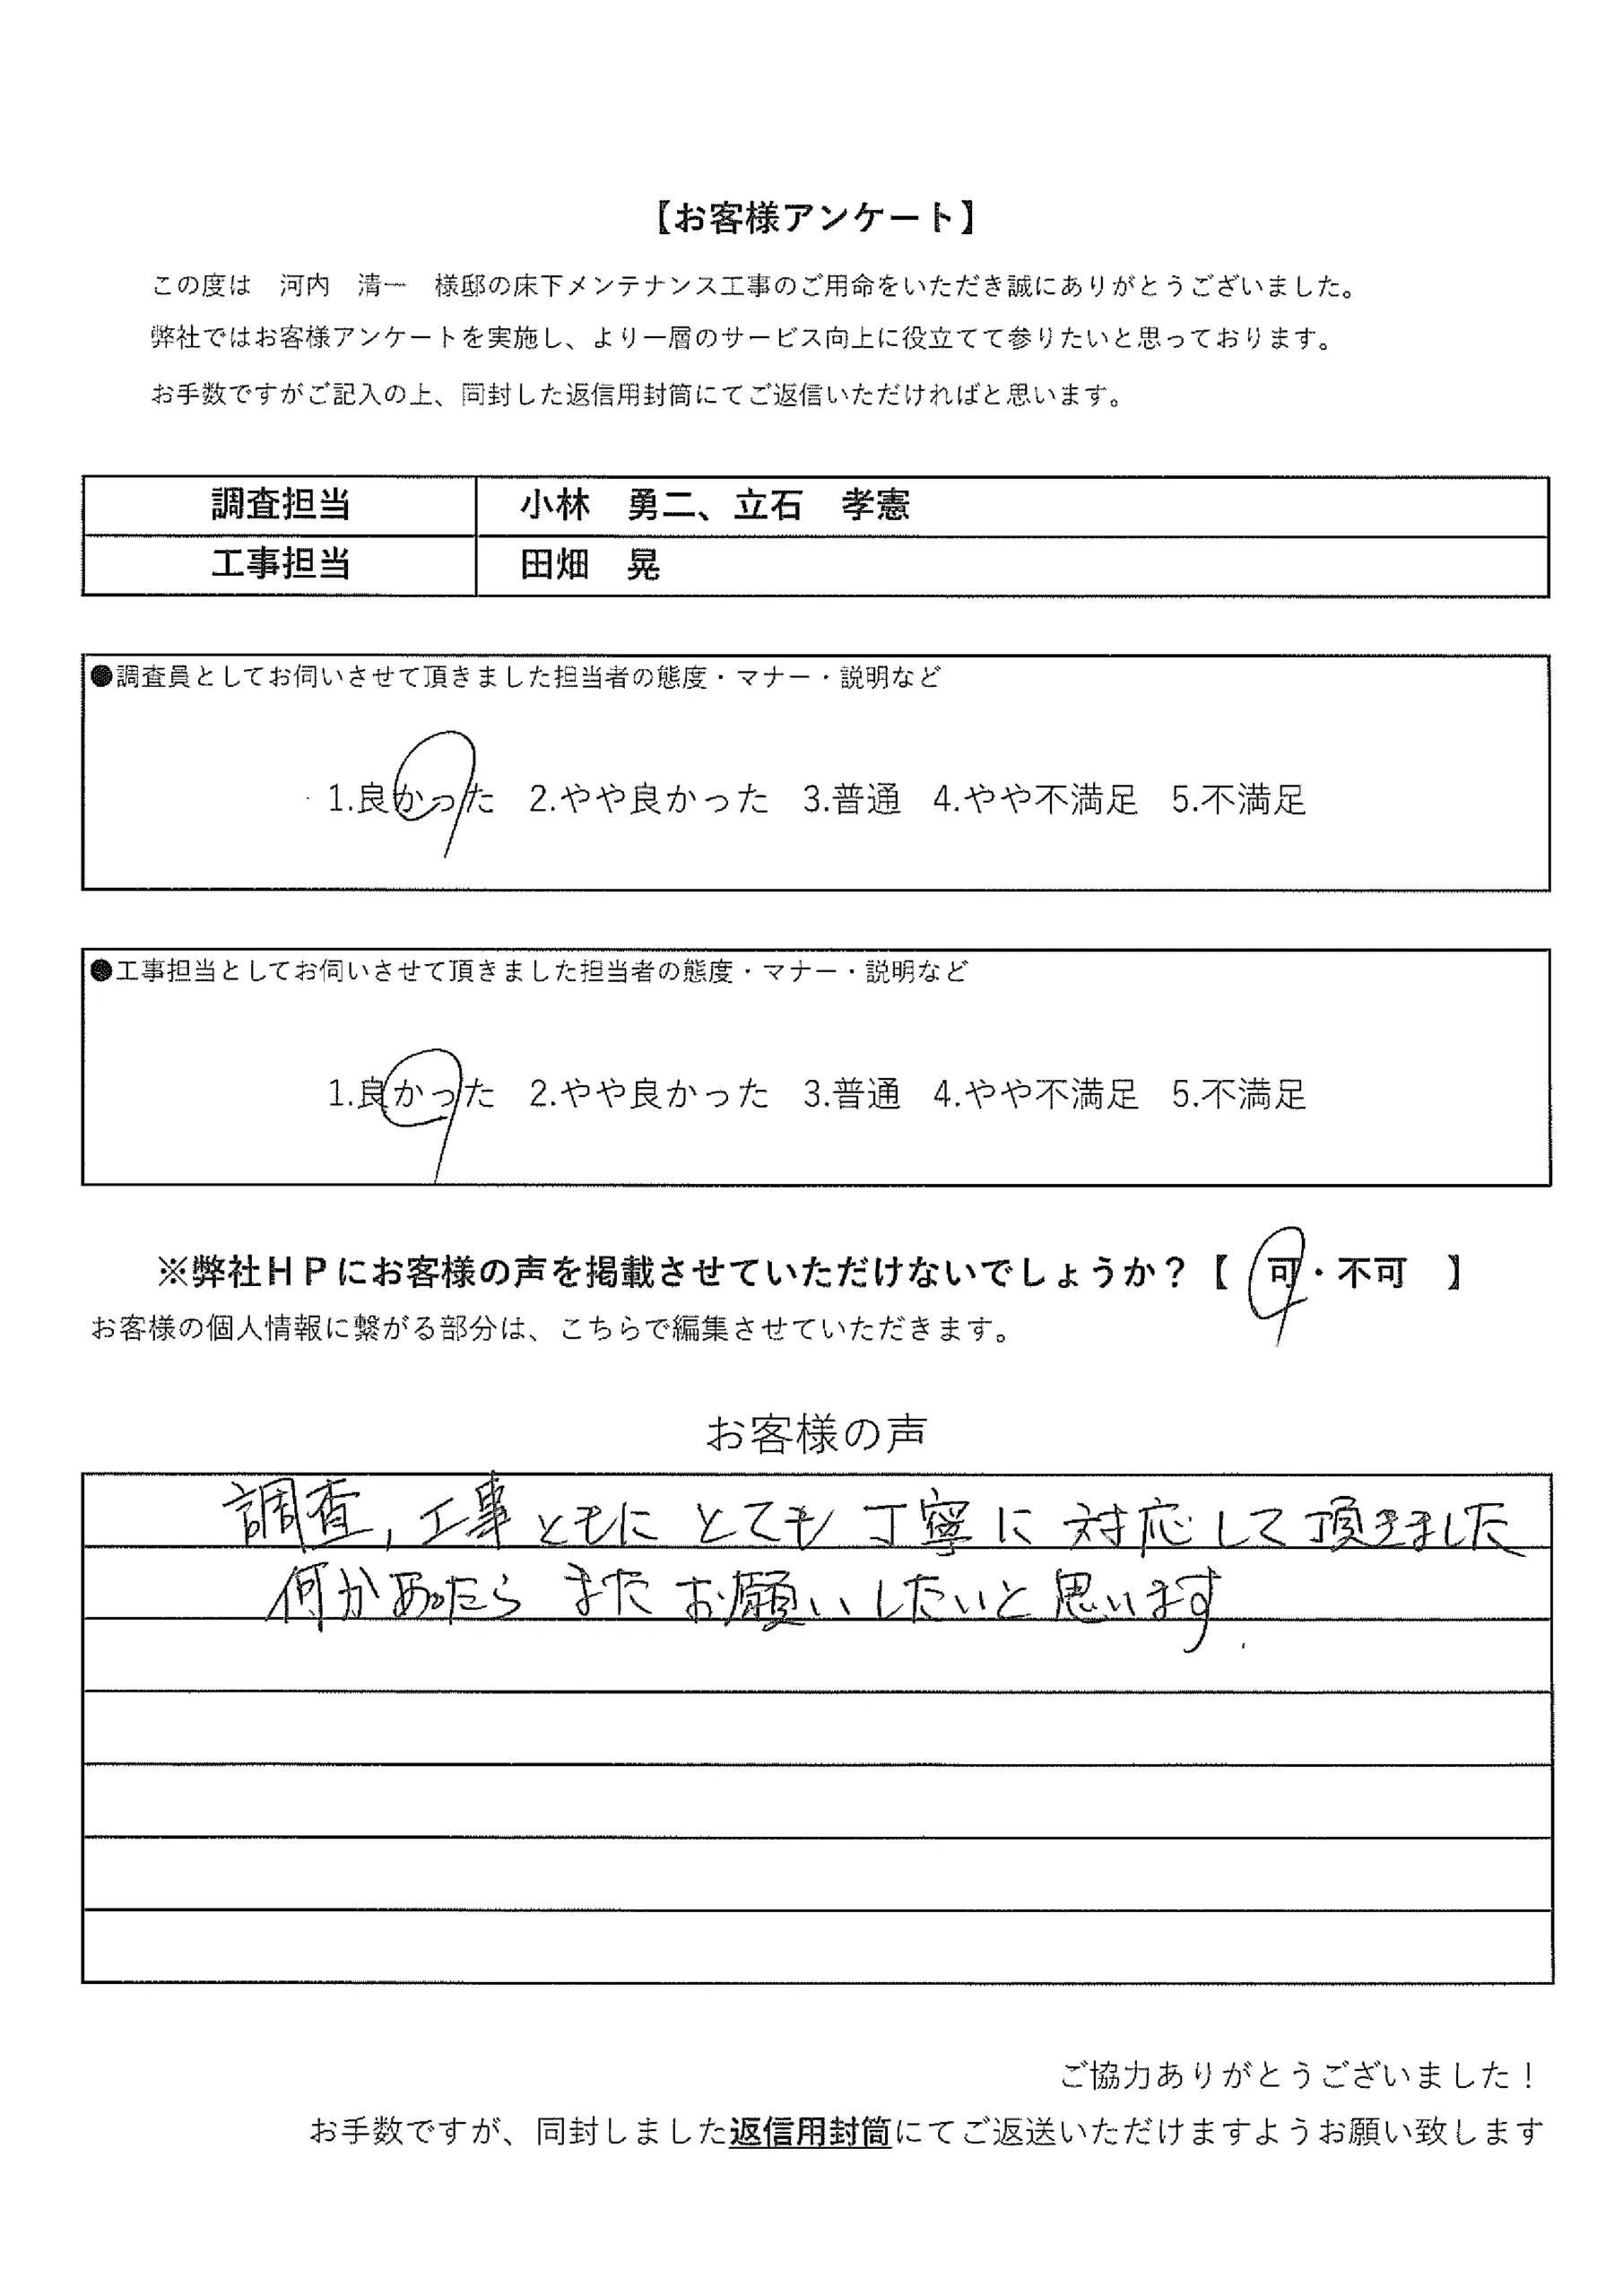 【お客様アンケート】
この度は　河内　清一　様邸の床下メンテナンス工事のご用命をいただき誠にありがとうございました。
弊社ではお客様アンケートを実施し、より一層のサービス向上に役立てて参りたいと思っております。
お手数ですがご記入の上、同封した返信用封筒にてご返信いただければと思います。
調査担当　小林　勇二、立石　孝憲
工事担当　田畑　晃
●調査員としてお伺いさせて頂きました担当者の態度・マナー・説明など
1.良かった　2.やや良かった　3.普通　4.やや不満足　5.不満足
●工事担当としてお伺いさせて頂きました担当者の態度・マナー・説明など
1.良かった　2.やや良かった　3.普通　4.やや不満足　5.不満足
※弊社ＨＰにお客様の声を掲載させていただけないでしょうか？【　可・不可　】
お客様の個人情報に繋がる部分は、こちらで編集させていただきます。
お客様の声
調査，工事ともにとても丁寧に対応して頂きました
何かあったらまたお願いしたいと思います.
ご協力ありがとうございました！
お手数ですが、同封しました返信用封筒にてご返送いただけますようお願い致します